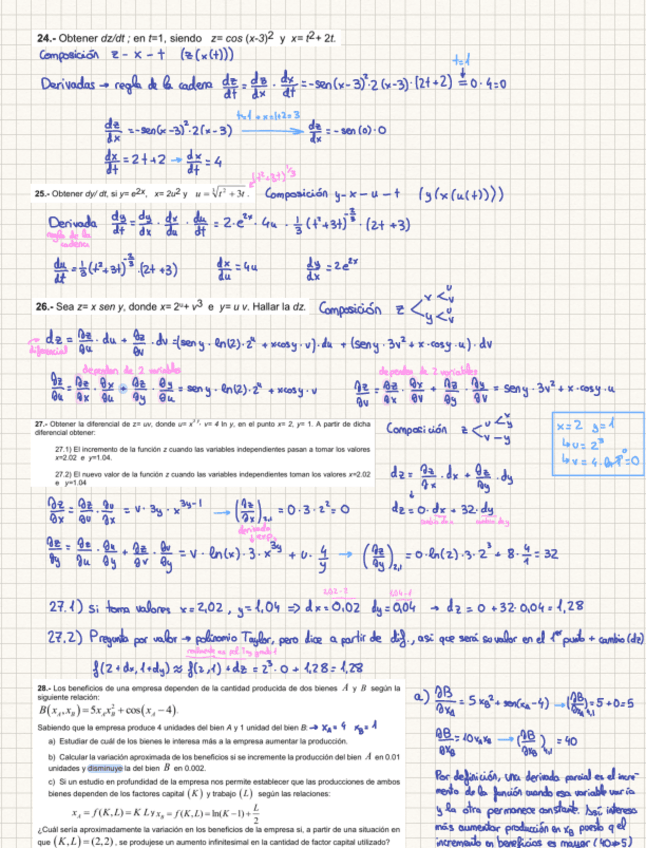 24.- Obtener dz/dt ; en t=1, siendo z= cos (x-3)² y x= t²+ 2t.
Composición z - x - t (z(x(t)))
t=1
Derivadas → regla de la cadena dz/dt = dz/dx · dx/dt = -sen(x-3)²·2(x-3)·(2t+2) = 0·4=0
dz/dx = -sen(x-3)²·2(x-3) t=1 → x=1+2=3 → dz/dx = -sen(0)·0
dx/dt = 2t+2 → dx/dt = 4
25.- Obtener dy/ dt, si y= e^2x, x= 2u² y u = ∛(t² + 3t). (t²+3t)^1/3 Composición y-x-u-t (y(x(u(t))))
Derivada dy/dt = dy/dx · dx/du · du/dt = 2·e^2x · 4u · 1/3 (t²+3t)^-2/3 · (2t+3)
regla de la cadena
du/dt = 1/3 (t²+3t)^-2/3 · (2t+3) dx/du = 4u dy/dx = 2e^2x
26.- Sea z= x sen y, donde x= 2^u+ v³ e y= u v. Hallar la dz. Composición z < x < u v y < u v
dz = ∂z/∂u · du + ∂z/∂v · dv = (sen y · ln(2)·2^u + x cos y · v)·du + (sen y · 3v² + x·cos y · u)·dv
diferencial
dependen de 2 variables dependen de 2 variables
∂z/∂u = ∂z/∂x · ∂x/∂u + ∂z/∂y · ∂y/∂u = sen y · ln(2)·2^u + x cos y · v ∂z/∂v = ∂z/∂x · ∂x/∂v + ∂z/∂y · ∂y/∂v = sen y · 3v² + x·cos y · u
27.- Obtener la diferencial de z= uv, donde u= x^3y, v= 4 ln y, en el punto x= 2, y= 1. A partir de dicha
diferencial obtener:
Composición z < u < x y v - y
x=2 y=1
↳ u=2³
↳ v=4·ln 1=0
27.1) El incremento de la función z cuando las variables independientes pasan a tomar los valores
x=2.02 e y=1.04.
27.2) El nuevo valor de la función z cuando las variables independientes toman los valores x=2.02
e y=1.04
dz = ∂z/∂x · dx + ∂z/∂y · dy
dz = 0·dx + 32·dy
∂z/∂x = ∂z/∂u · ∂u/∂x = v · 3y · x^3y-1 → (∂z/∂x)2,1 = 0·3·2²=0
∂z/∂y = ∂z/∂u · ∂u/∂y + ∂z/∂v · ∂v/∂y = v · ln(x)·3·x^3y + u · 4/y → (∂z/∂y)2,1 = 0·ln(2)·3·2³ + 8·4/1 = 32
2,02-2 1,04-1
27.1) Si toma valores x=2,02, y=1,04 ⇒ dx=0,02 dy=0,04 → dz = 0+32·0,04=1,28
27.2) Pregunta por valor → polinomio Taylor, pero dice a partir de dif., así que será su valor en el 1er punto + cambio (dz)
f(2+dx,1+dy) ≈ f(2,1)+dz = 2³·0+1,28=1,28
28.- Los beneficios de una empresa dependen de la cantidad producida de dos bienes A y B según la
siguiente relación:
B(x_A,x_B)=5x_A x_B² + cos(x_A − 4).
Sabiendo que la empresa produce 4 unidades del bien A y 1 unidad del bien B: → x_A=4 x_B=1
a) Estudiar de cuál de los bienes le interesa más a la empresa aumentar la producción.
b) Calcular la variación aproximada de los beneficios si se incrementa la producción del bien A en 0.01
unidades y disminuye la del bien B en 0.002.
c) Si un estudio en profundidad de la empresa nos permite establecer que las producciones de ambos
bienes dependen de los factores capital (K) y trabajo (L) según las relaciones:
x_A = f(K,L)= K L y x_B = f(K,L)= ln(K−1)+ L/2
¿Cuál sería aproximadamente la variación en los beneficios de la empresa si, a partir de una situación en
que (K,L)=(2,2), se produjese un aumento infinitesimal en la cantidad de factor capital utilizado?
a) ∂B/∂x_A = 5x_B² + sen(x_A-4) → (∂B/∂x_A)4,1 = 5+0=5
∂B/∂x_B = 10x_A x_B → (∂B/∂x_B)4,1 = 40
Por definición, una derivada parcial es el incre-
mento de la función cuando esa variable varía
y la otra permanece constante. Así interesa
más aumentar producción en x_B puesto q el
incremento en beneficios es mayor (40>5)